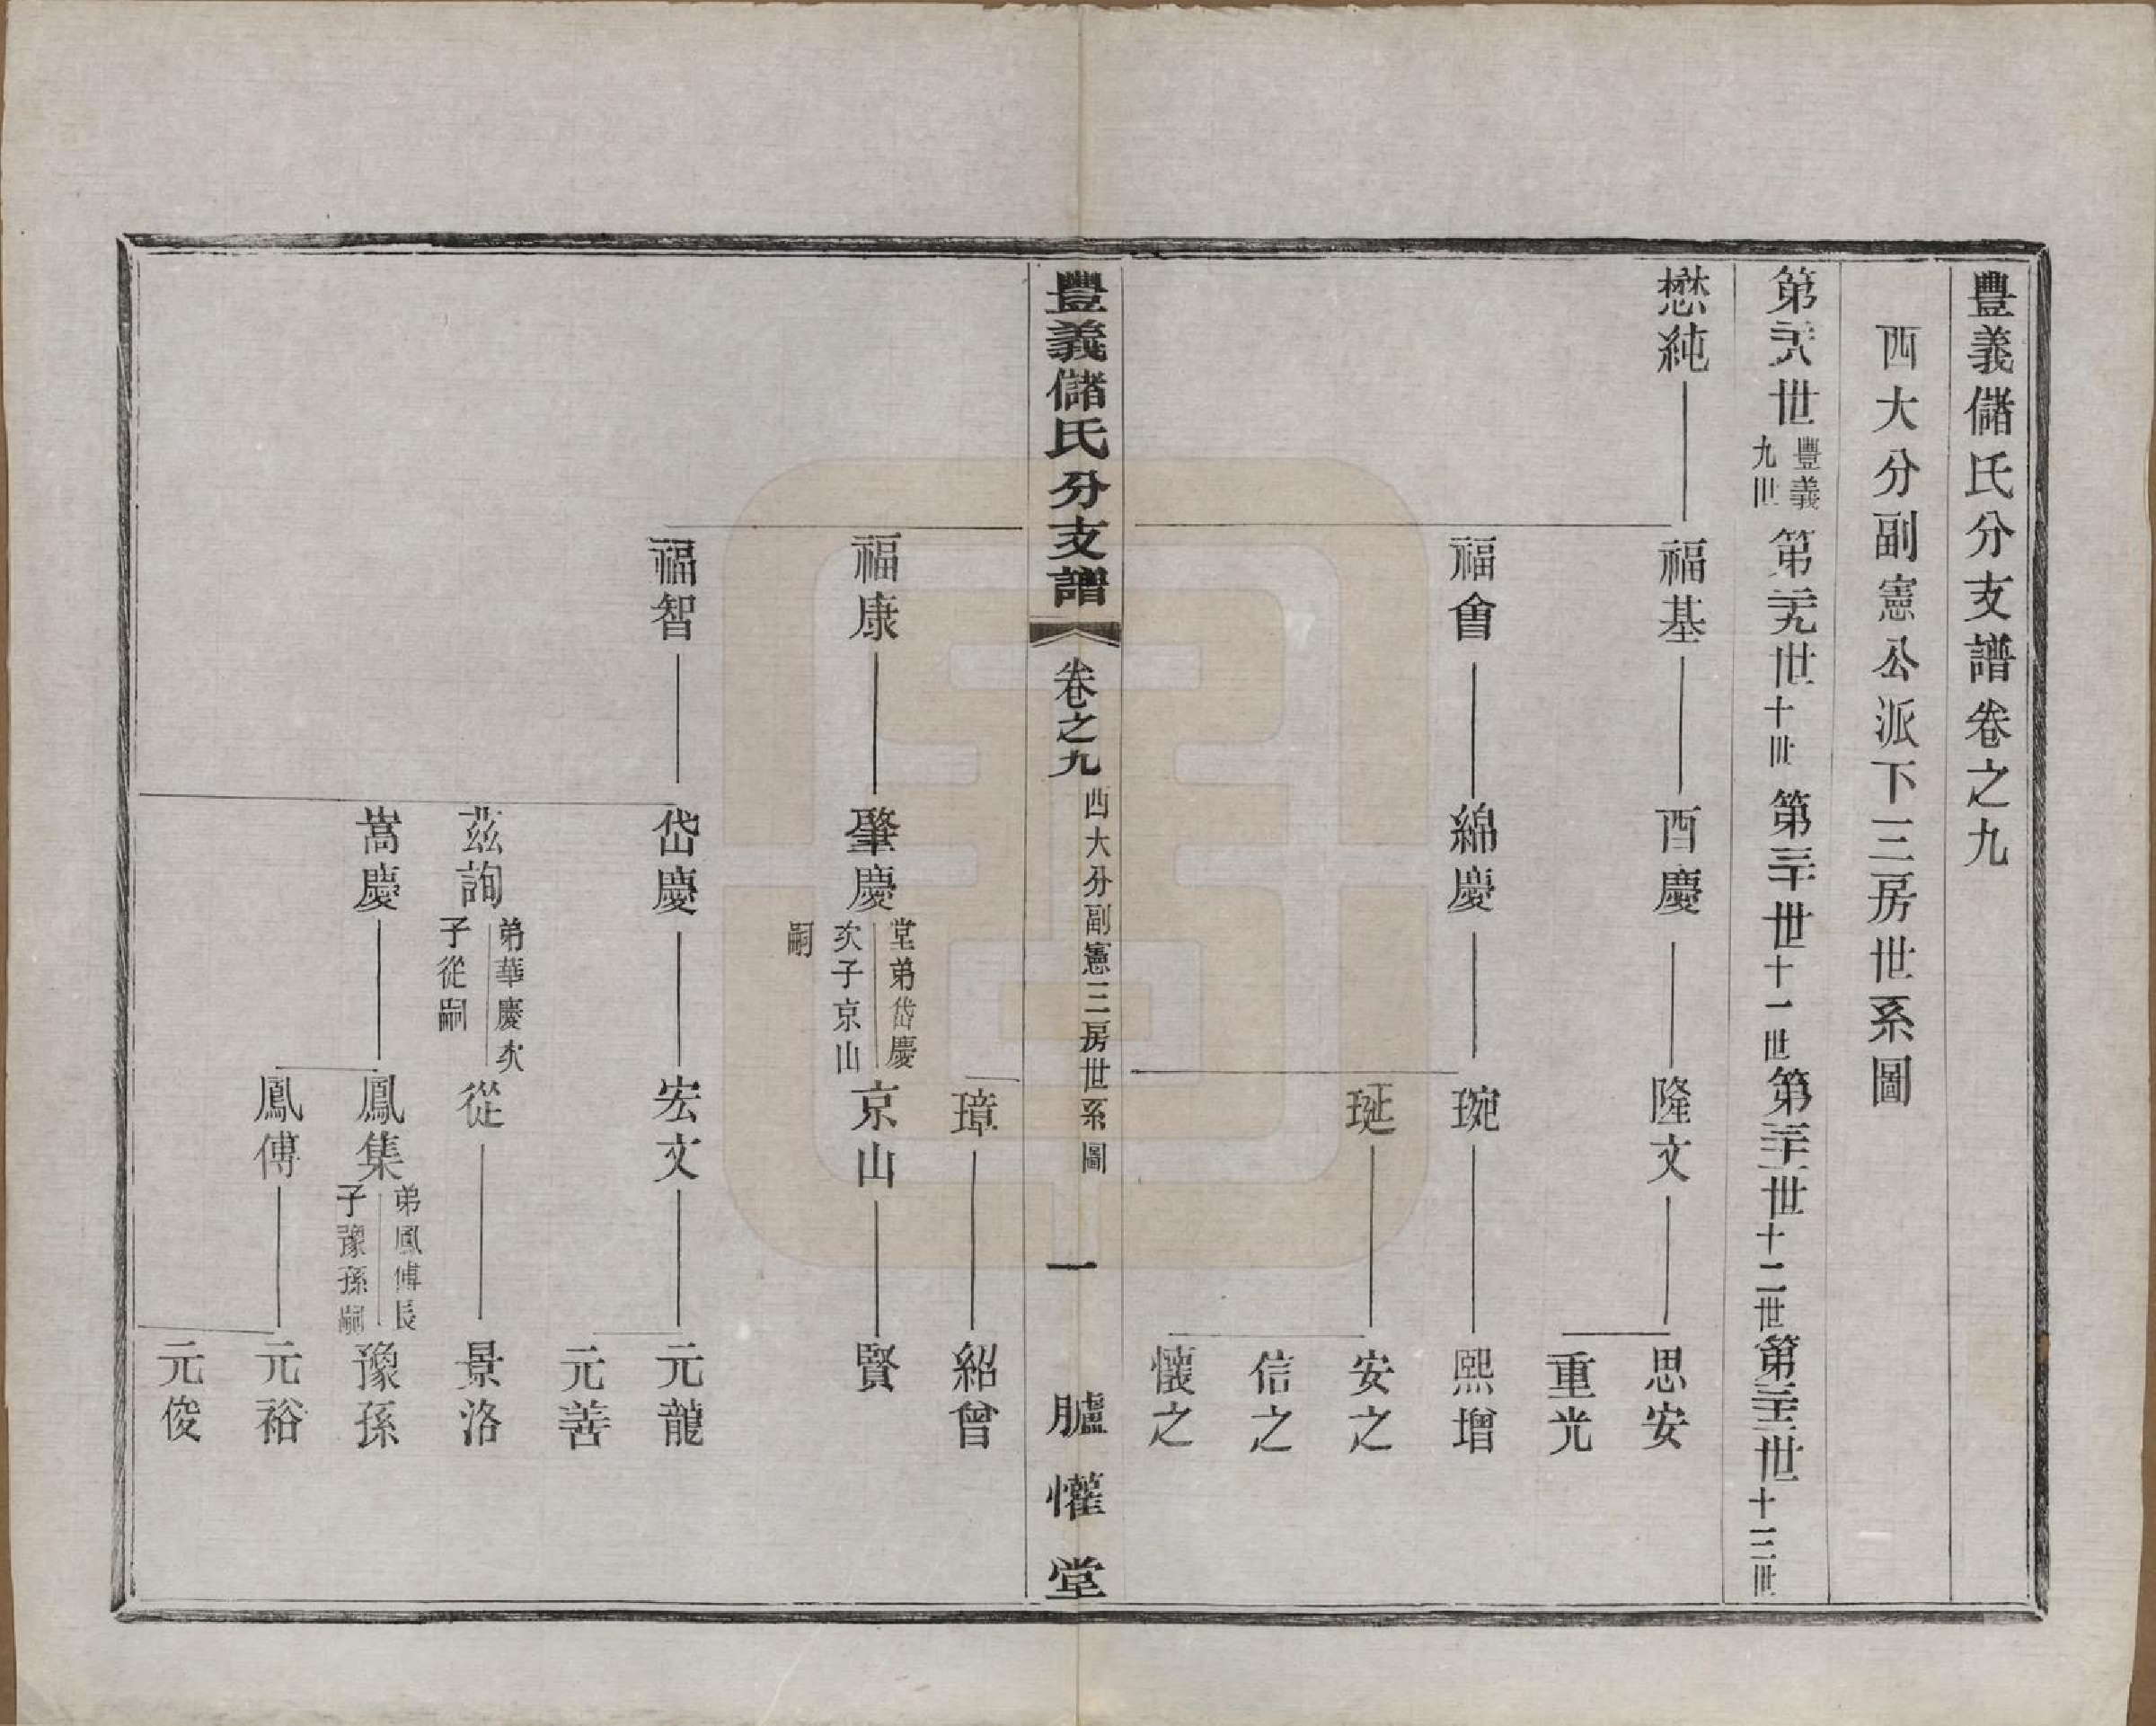 豐義儲氏分支譜卷之九
西大分副憲公派下三房世系圖
第二十八世 豐義九世 第二十九世 十世 第三十世 十一世 第三十一世 十二世 第三十二世 十三世
懋純 福基 酉慶 隆文 思安
重光
福會 綿慶 琬 熙增
珽 安之
信之
懷之
豐義儲氏分支譜 卷之九 西大分副憲三房世系圖 一 臚懽堂
璋 紹曾
福康 肇慶 堂弟岱慶次子京山嗣 京山 賢
福智 岱慶 宏文 元龍
元善
茲詢 弟華慶次子從嗣 從 景洛
嵩慶 鳳集 弟鳳傅長子豫孫嗣 豫孫
鳳傅 元裕
元俊